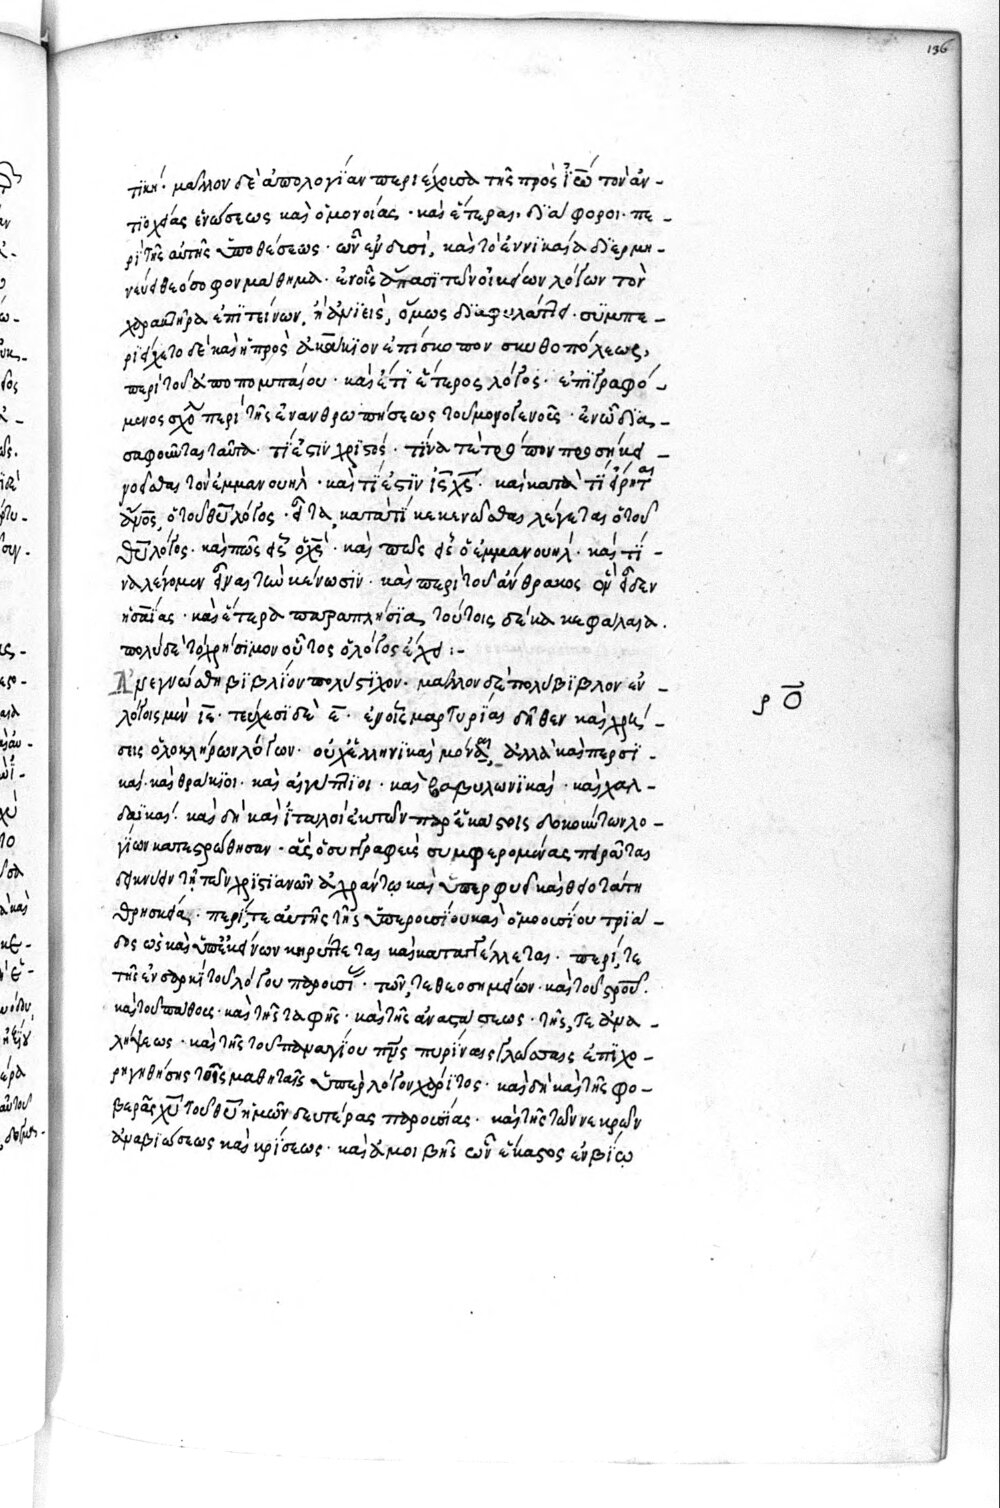 136
τϊκή· μᾶλλον δὲ ἀπολογίαν περιέχουσα τῆς πρὸς ἰω̅ τὸν ἀν-
τιοχείας ἑνώσεως καὶ ὁμονοίας· καὶ ἕτεραι διάφοροι· πε-
ρὶ τῆς αὐτῆς ὑποθέσεως· ὧν ἐν δυσὶ, καὶ τὸ ἐννϊκαία διερμη-
νεύει θεόσοφον μάθημα· ἐν οἷς ἅπασι τῶν οἰκείων λόγων τὸν
χαρακτῆρα ἐπιτείνων, ἢ ἀνιεὶς, ὅμως διαφυλάττει· συμπε-
ριείχετο δὲ καὶ ἡ πρὸς ἀκάκιον ἐπίσκοπον σκυθοπόλεως,
περὶ τοῦ ἀποπομπαίου· καὶ ἔτι ἕτερος λόγος· ἐπιγραφό-
μενος σχόλ περὶ τῆς ἐνανθρωπήσεως τοῦ μονογενοῦς· ἐν ὧ δια-
σαφοῦνται ταῦτα· τί ἐστιν χριστός· τίνα τε τρόπον προσήκει
νοεῖσθαι τὸν ἐμμανουήλ· καὶ τί ἐστιν ι̅ς̅ χ̅ς̅· καὶ κατὰ τί εἴρηται
ἄν̅ο̅ς̅, ὁ τοῦ θ̅υ̅ λόγος· εἶτα, κατὰ τί κεκενῶσθαι λέγεται ὁ τοῦ
θ̅υ̅ λόγος· καὶ πῶς εἷς ὁ χ̅ς̅· καὶ πῶς εἷς ὁ ἐμμανουήλ· καὶ τί-
να λέγομεν εἶναι τὴν κένωσϊν· καὶ περὶ τοῦ ἄνθρακος ὃν εἶδεν
ἡσαΐας· καὶ ἕτερα παραπλήσϊα τούτοις δέκα κεφάλαια.
πολὺ δὲ τὸ χρήσιμον οὗτος ὁ λόγος ἔχει:-
Ἀνεγνώσθη βιβλίον πολύστϊχον· μᾶλλον δὲ πολύβϊβλον ἐν
λόγοις μὲν ι̅ε̅· τεύχεσϊ δὲ ε̅· ἐν οἷς μαρτυρίαι δῆθεν καὶ χρή-
ρ ο̅
σεις ὁλοκλήρων λόγων· οὐχ ἑλληνϊκαὶ μόναι, ἀλλὰ καὶ περσϊ-
καὶ· καὶ θράκϊοι· καὶ αἰγύπτϊοι· καὶ βαβυλωνϊκαὶ· καὶ χαλ-
δαϊκαὶ· καὶ δὴ καὶ ἰταλοὶ ἐκ τῶν παρ' ἑκάστοις δοκούντων λο-
γίων κατεστρώθησαν· ἃς ὁ συγγραφεὺς συμφερομένας πειρᾶται
δεικνύειν τῇ τῶν χρϊστϊανῶν ἀχράντω καὶ ὑπερφυεῖ καὶ θειοτάτη
θρησκεία· περί, τε αὐτῆς τῆς ὑπερουσίου καὶ ὁμοουσίου τρϊά-
δος ὡς καὶ ὑπ' ἐκείνων κηρύττεται καὶ καταγγέλλεται· περί, τε
τῆς ἐν σαρκὶ τοῦ λόγου παρουσί· τῶν, τε θεοσημείων· καὶ τοῦ σ̅ρ̅ο̅υ̅·
καὶ τοῦ πάθους· καὶ τῆς ταφῆς· καὶ τῆς ἀναστάσεως· τῆς, τε ἀνα-
λήψεως· καὶ τῆς τοῦ παναγίου π̅ν̅ς̅ πυρίναις γλώσσαις ἐπϊχο-
ρηγηθήσης τοῖς μαθηταῖς ὑπὲρ λόγον χάρϊτος· καὶ δὴ καὶ τῆς φο-
βερᾶς χ̅υ̅ τοῦ θ̅υ̅ ἡμῶν δευτέρας παρουσίας· καὶ τῆς τῶν νεκρῶν
ἀναβϊώσεως καὶ κρίσεως· καὶ ἀμοιβῆς ὧν ἕκαστος ἐν βίω